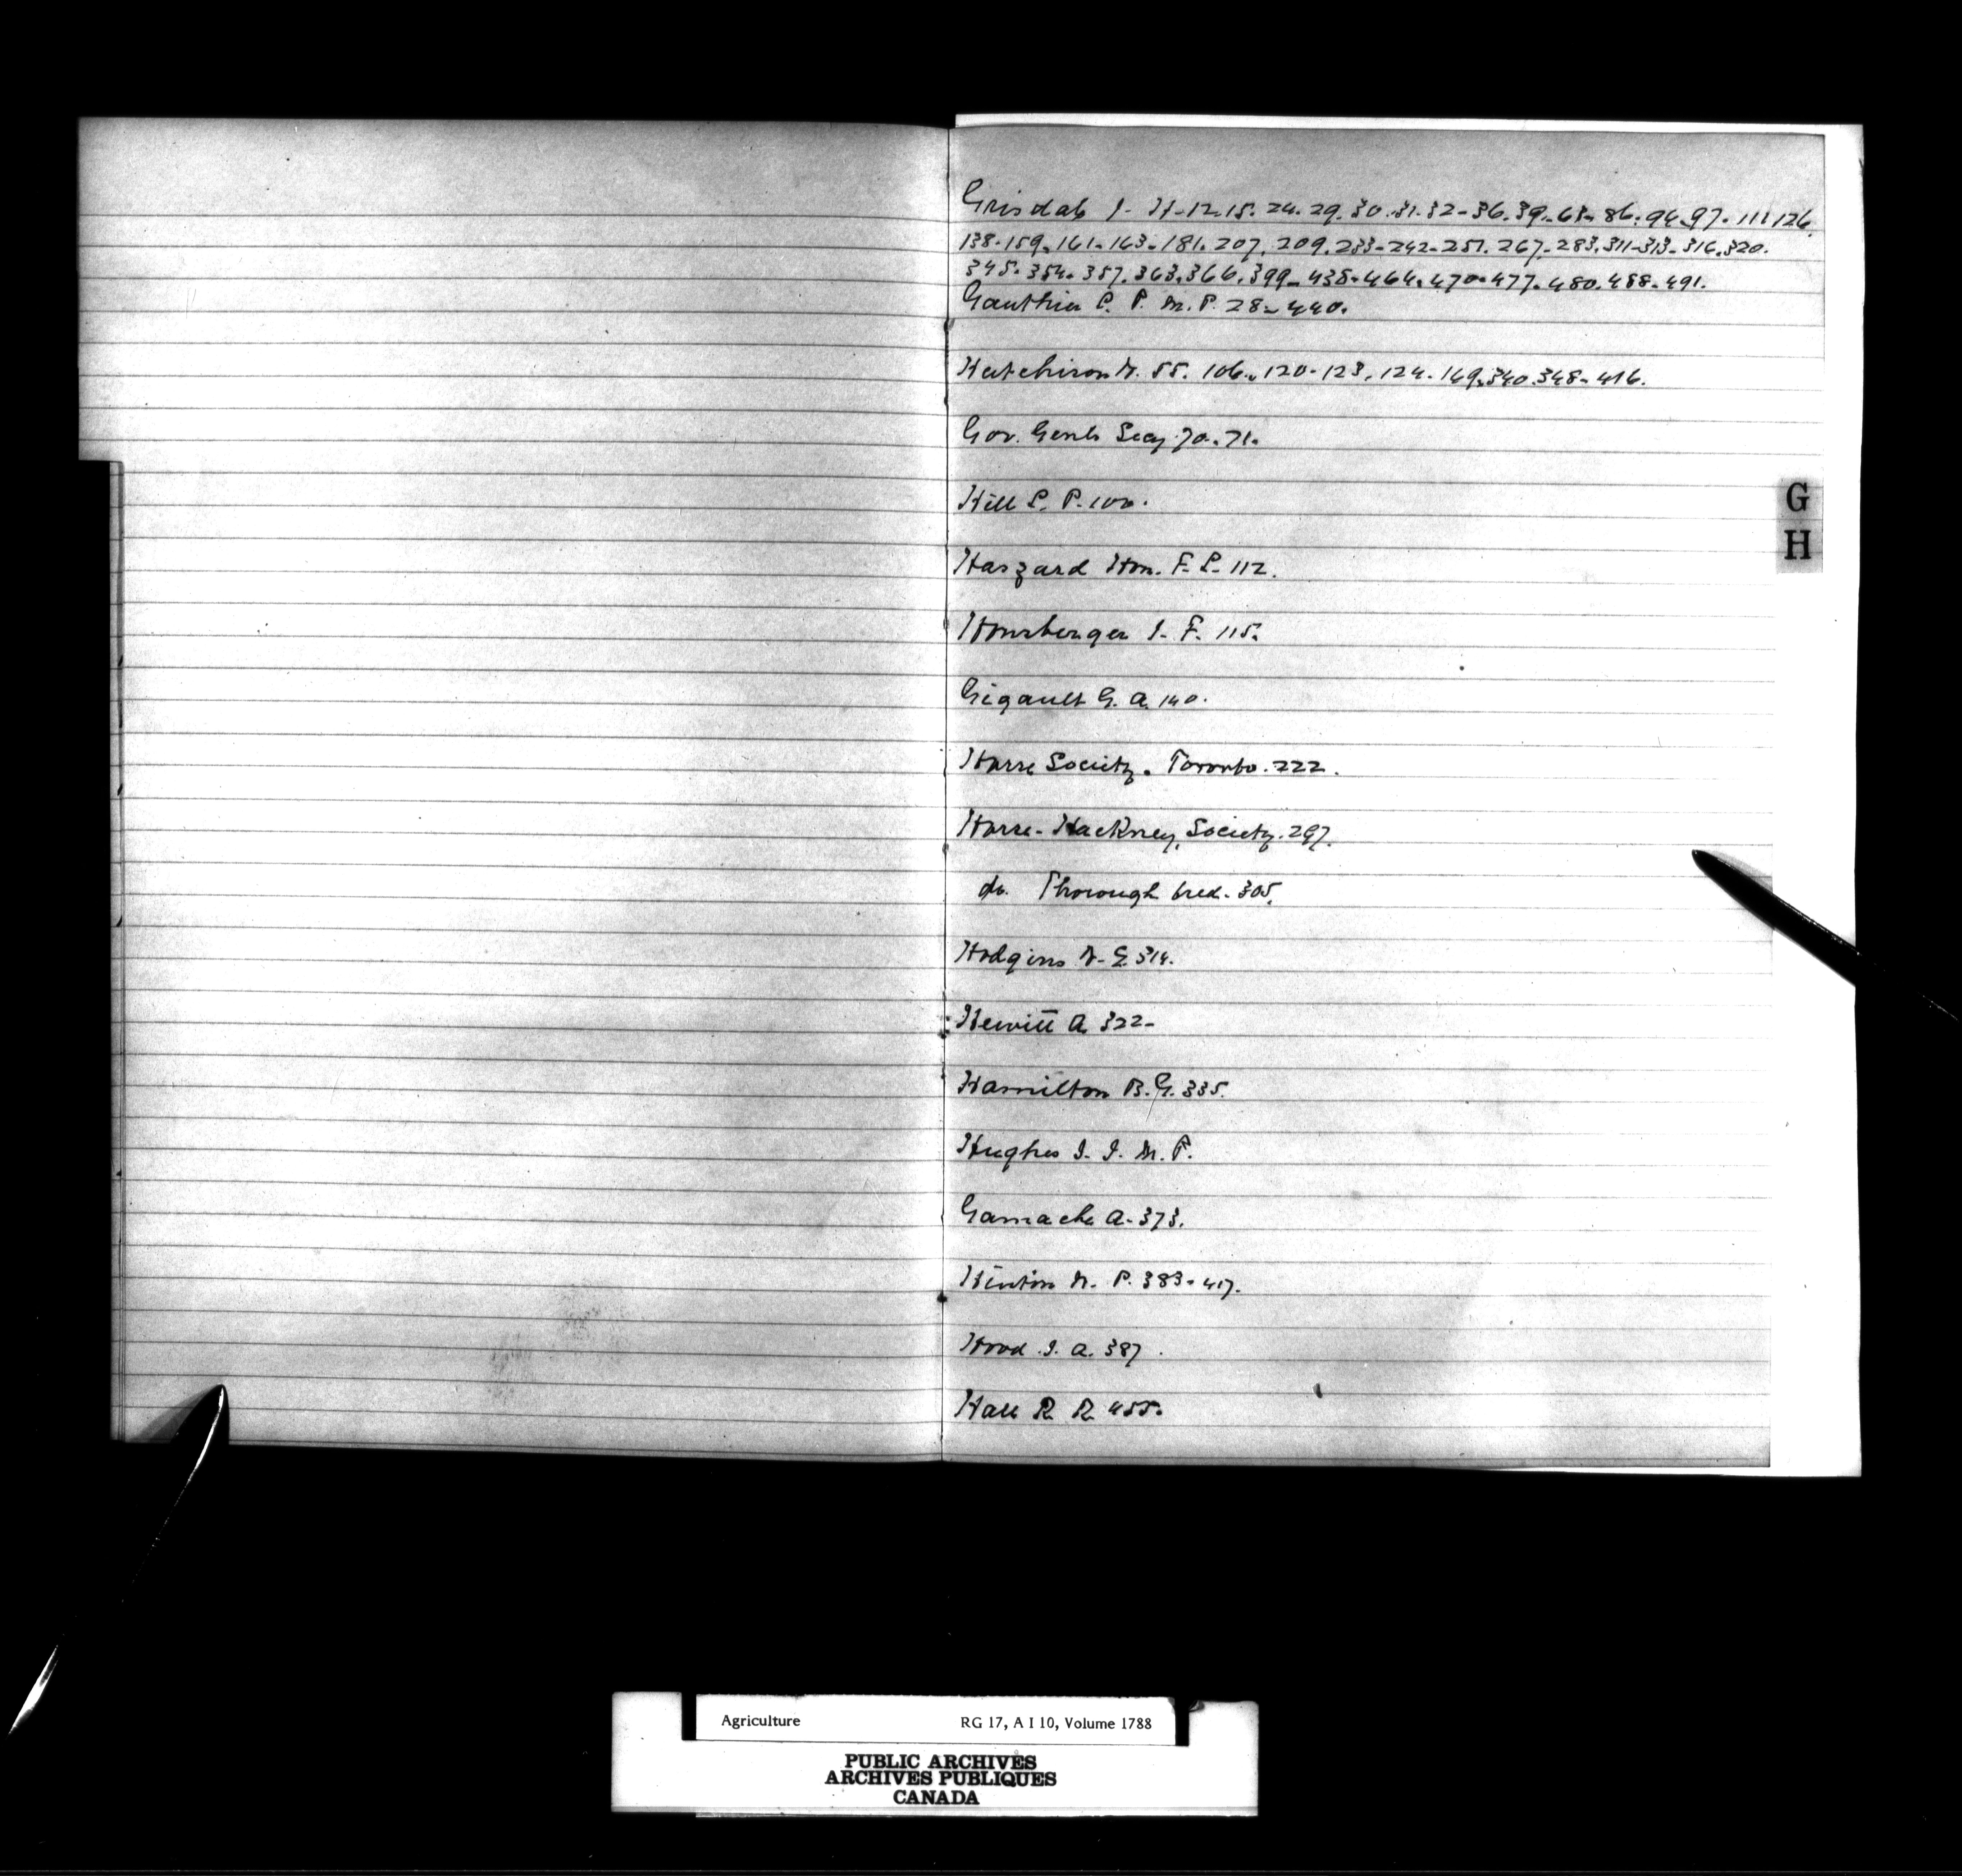 Grisdale J. H-12.15.24.29.30.31.32-36.39-63-86.94-97.111.126.
138-159-161-163-181.207.209.233-242-251.267-283.311-313-316.320.
345.354.357.363.366.399-435-464.470-477.480.488-491.
Gauthier L. P. M.P. 28-440.
Hutchison W. 55.106.120-123.124.169.340.348-416.
Gov. Genls Secy 70.71.
Hill L. P. 100.
Haszard Hon. F. L. 112.
Hunsberger J. F. 115.
Gigault G. A. 140.
Horse Society. Toronto. 222.
Horse-Hackney Society. 297.
do. Thorough bred. 305.
Hodgins W. E. 314.
Hewitt A. 322-
Hamilton B. G. 335.
Hughes J. J. M. P.
Gamache A. 373.
Hinton N. P. 383-417.
Hood J. A. 387.
Hall R. R. 455.
G
H
Agriculture RG 17, A I 10, Volume 1788
PUBLIC ARCHIVES
ARCHIVES PUBLIQUES
CANADA